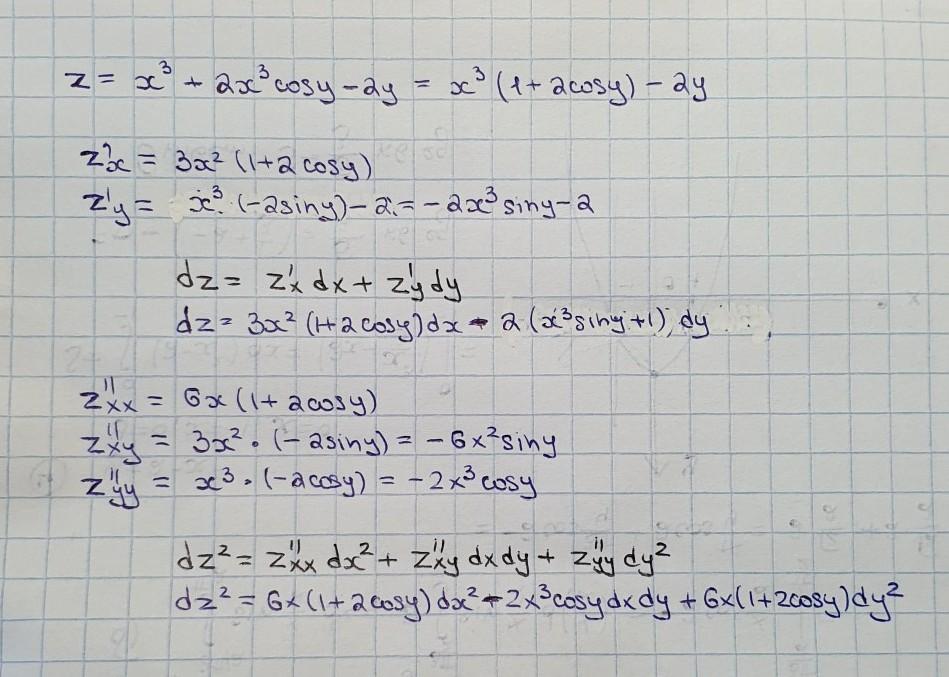 z = x³ + 2x³cosy - 2y = x³(1 + 2cosy) - 2y
z'x = 3x²(1+2cosy)
z'y = x³·(-2siny) - 2 = -2x³siny - 2
dz = z'x dx + z'y dy
dz = 3x²(1+2cosy)dx - 2(x³siny+1)dy
z''xx = 6x(1+2cosy)
z''xy = 3x²·(-2siny) = -6x²siny
z''yy = x³·(-2cosy) = -2x³cosy
dz² = z''xx dx² + z''xy dxdy + z''yy dy²
dz² = 6x(1+2cosy)dx² - 2x³cosydxdy + 6x(1+2cosy)dy²